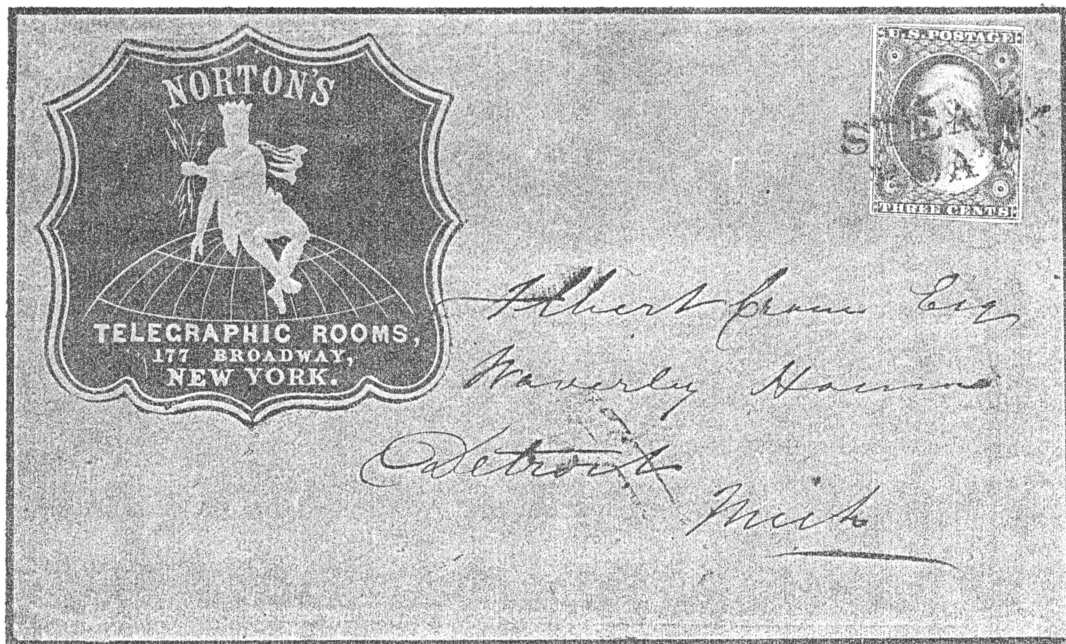 NORTON'S
TELEGRAPHIC ROOMS,
177 BROADWAY,
NEW YORK.
U.S. POSTAGE
STEAM
THREE CENTS
Albert Crane Esq
Waverly House
Detroit
Mich